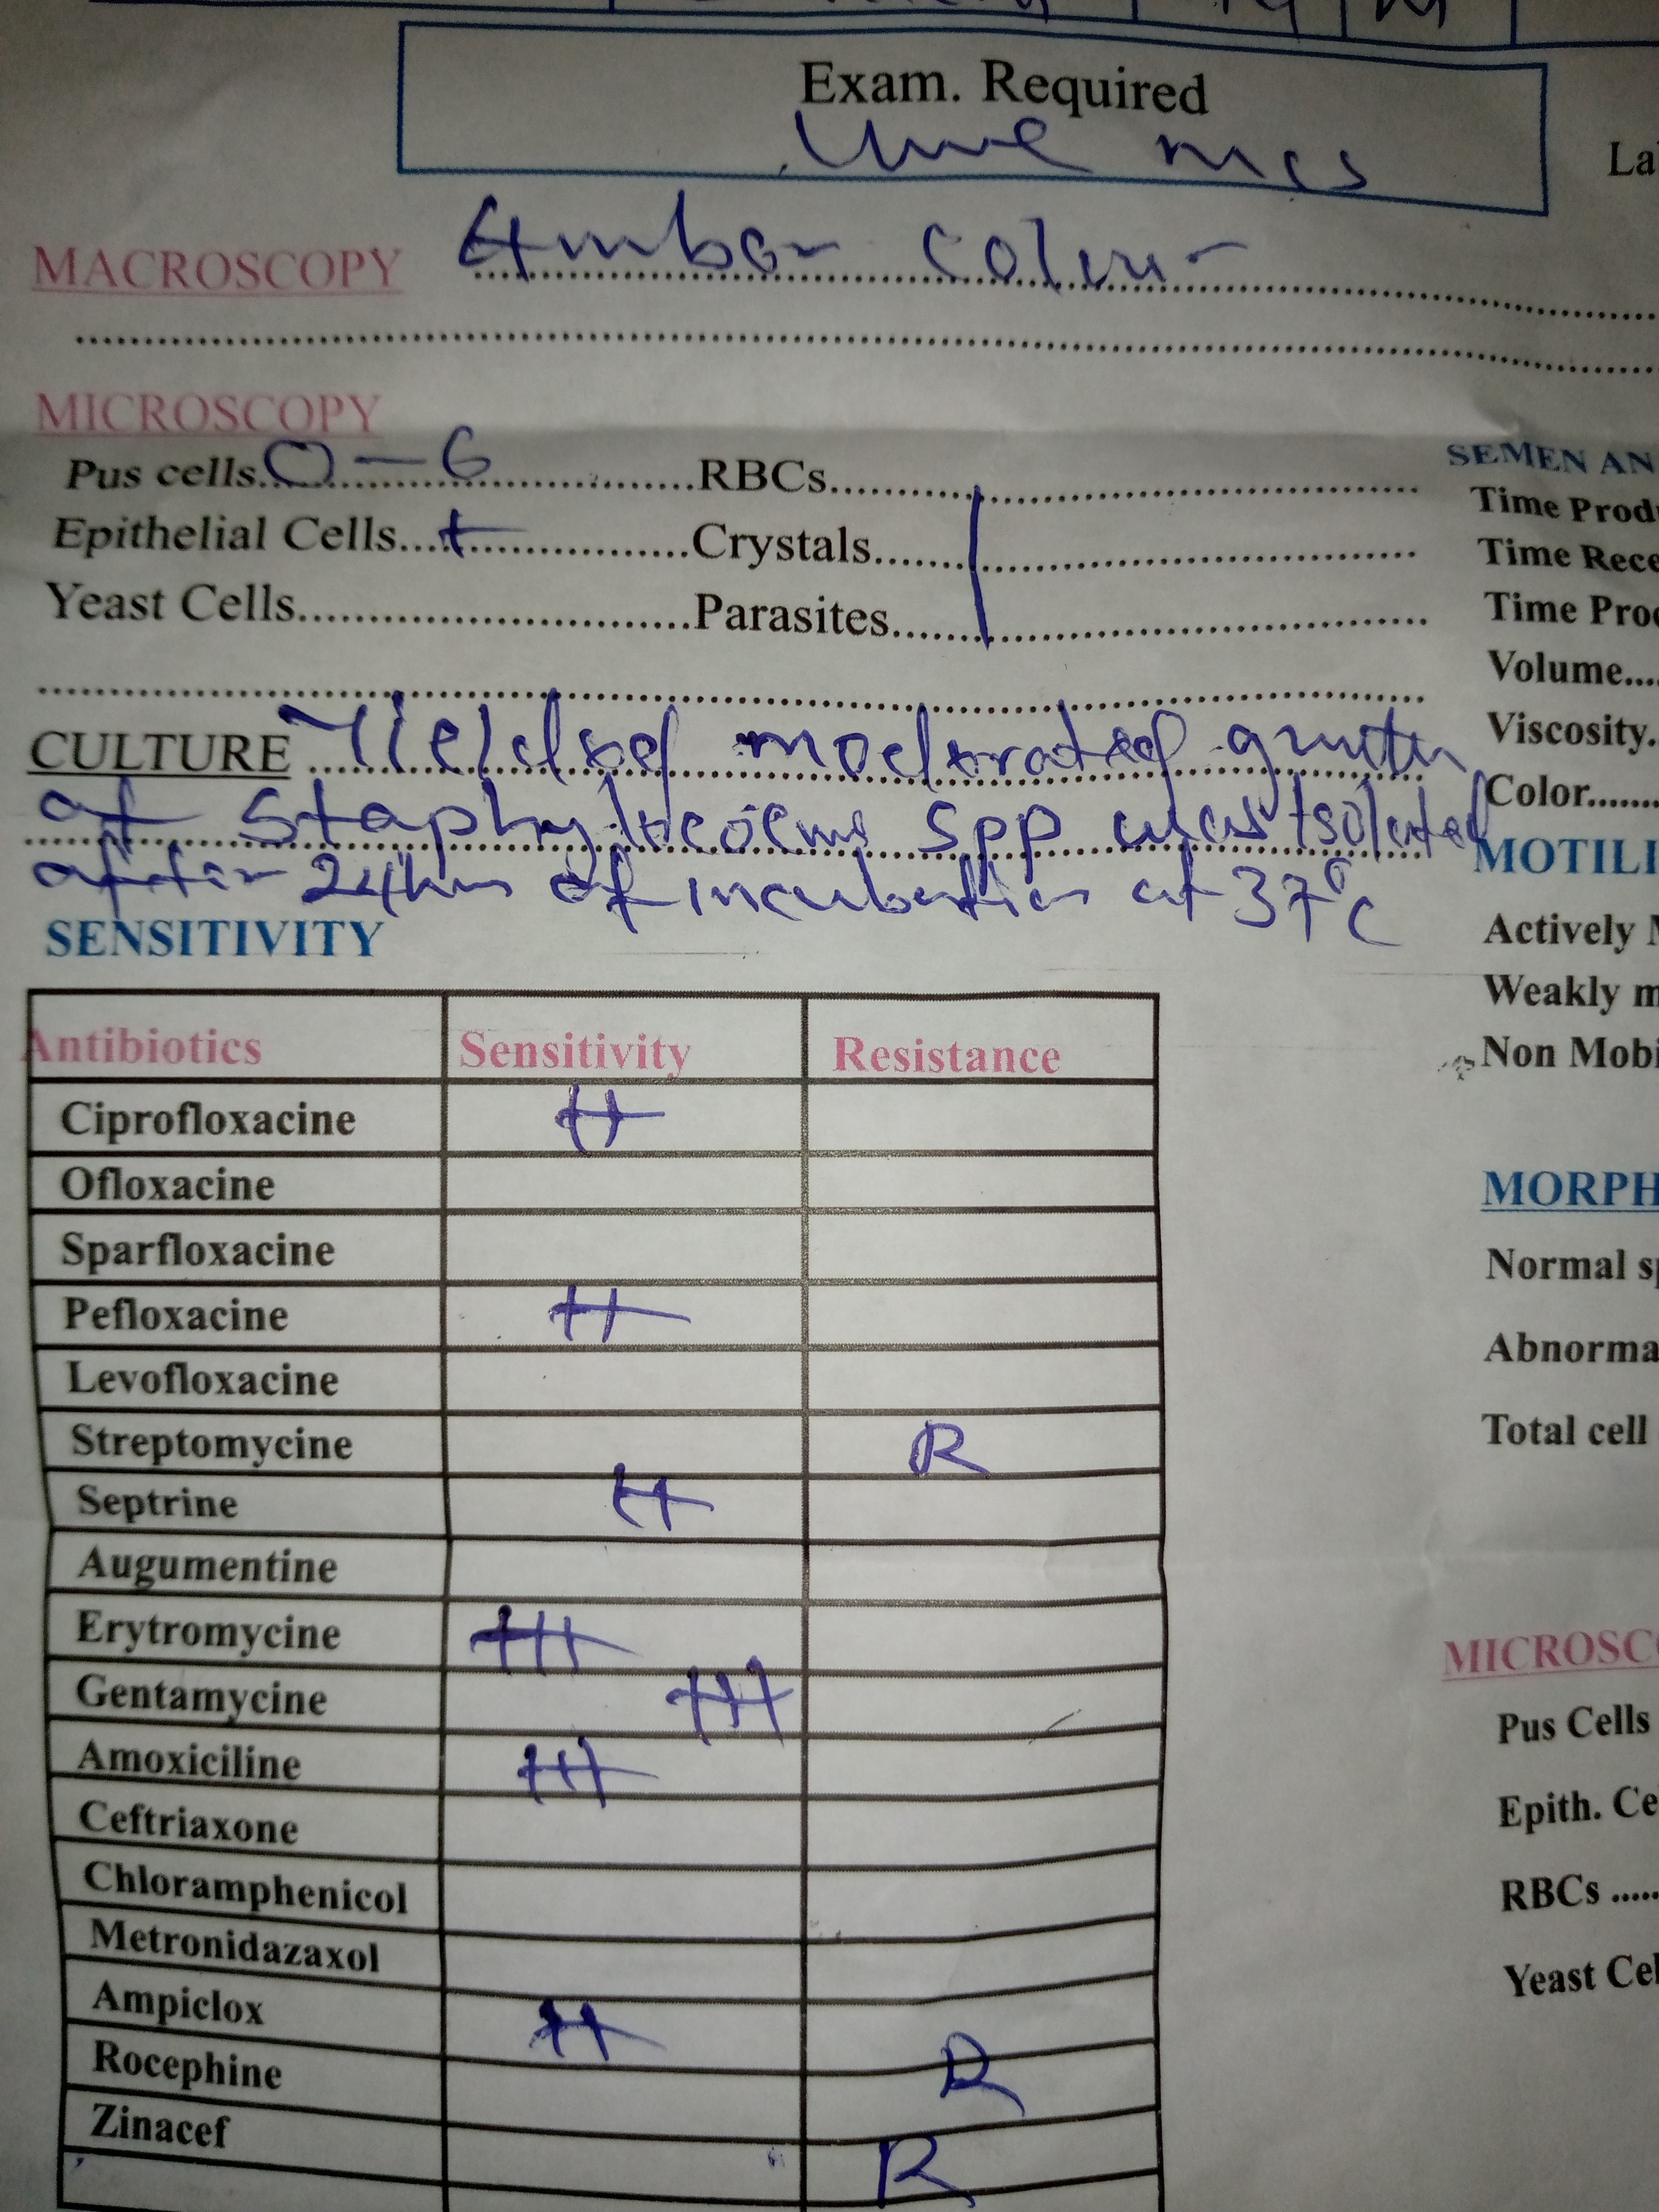 Exam. Required
Urine mcs
La
MACROSCOPY Amber colour
MICROSCOPY
Pus cells 0 - 6 RBCs
Epithelial Cells + Crystals
Yeast Cells Parasites
CULTURE Yielded moderated growth
of Staphylococcus spp was Isolated
after 24hrs of incubation at 37°C
SENSITIVITY
Antibiotics Sensitivity Resistance
Ciprofloxacine ++
Ofloxacine
Sparfloxacine
Pefloxacine ++
Levofloxacine
Streptomycine R
Septrine ++
Augumentine
Erytromycine +++
Gentamycine +++
Amoxiciline +++
Ceftriaxone
Chloramphenicol
Metronidazaxol
Ampiclox ++
Rocephine R
Zinacef R
SEMEN AN
Time Produ
Time Rece
Time Proc
Volume....
Viscosity.
Color.......
MOTILI
Actively M
Weakly m
Non Mobi
MORPH
Normal sp
Abnorma
Total cell
MICROSCO
Pus Cells
Epith. Ce
RBCs .....
Yeast Cel